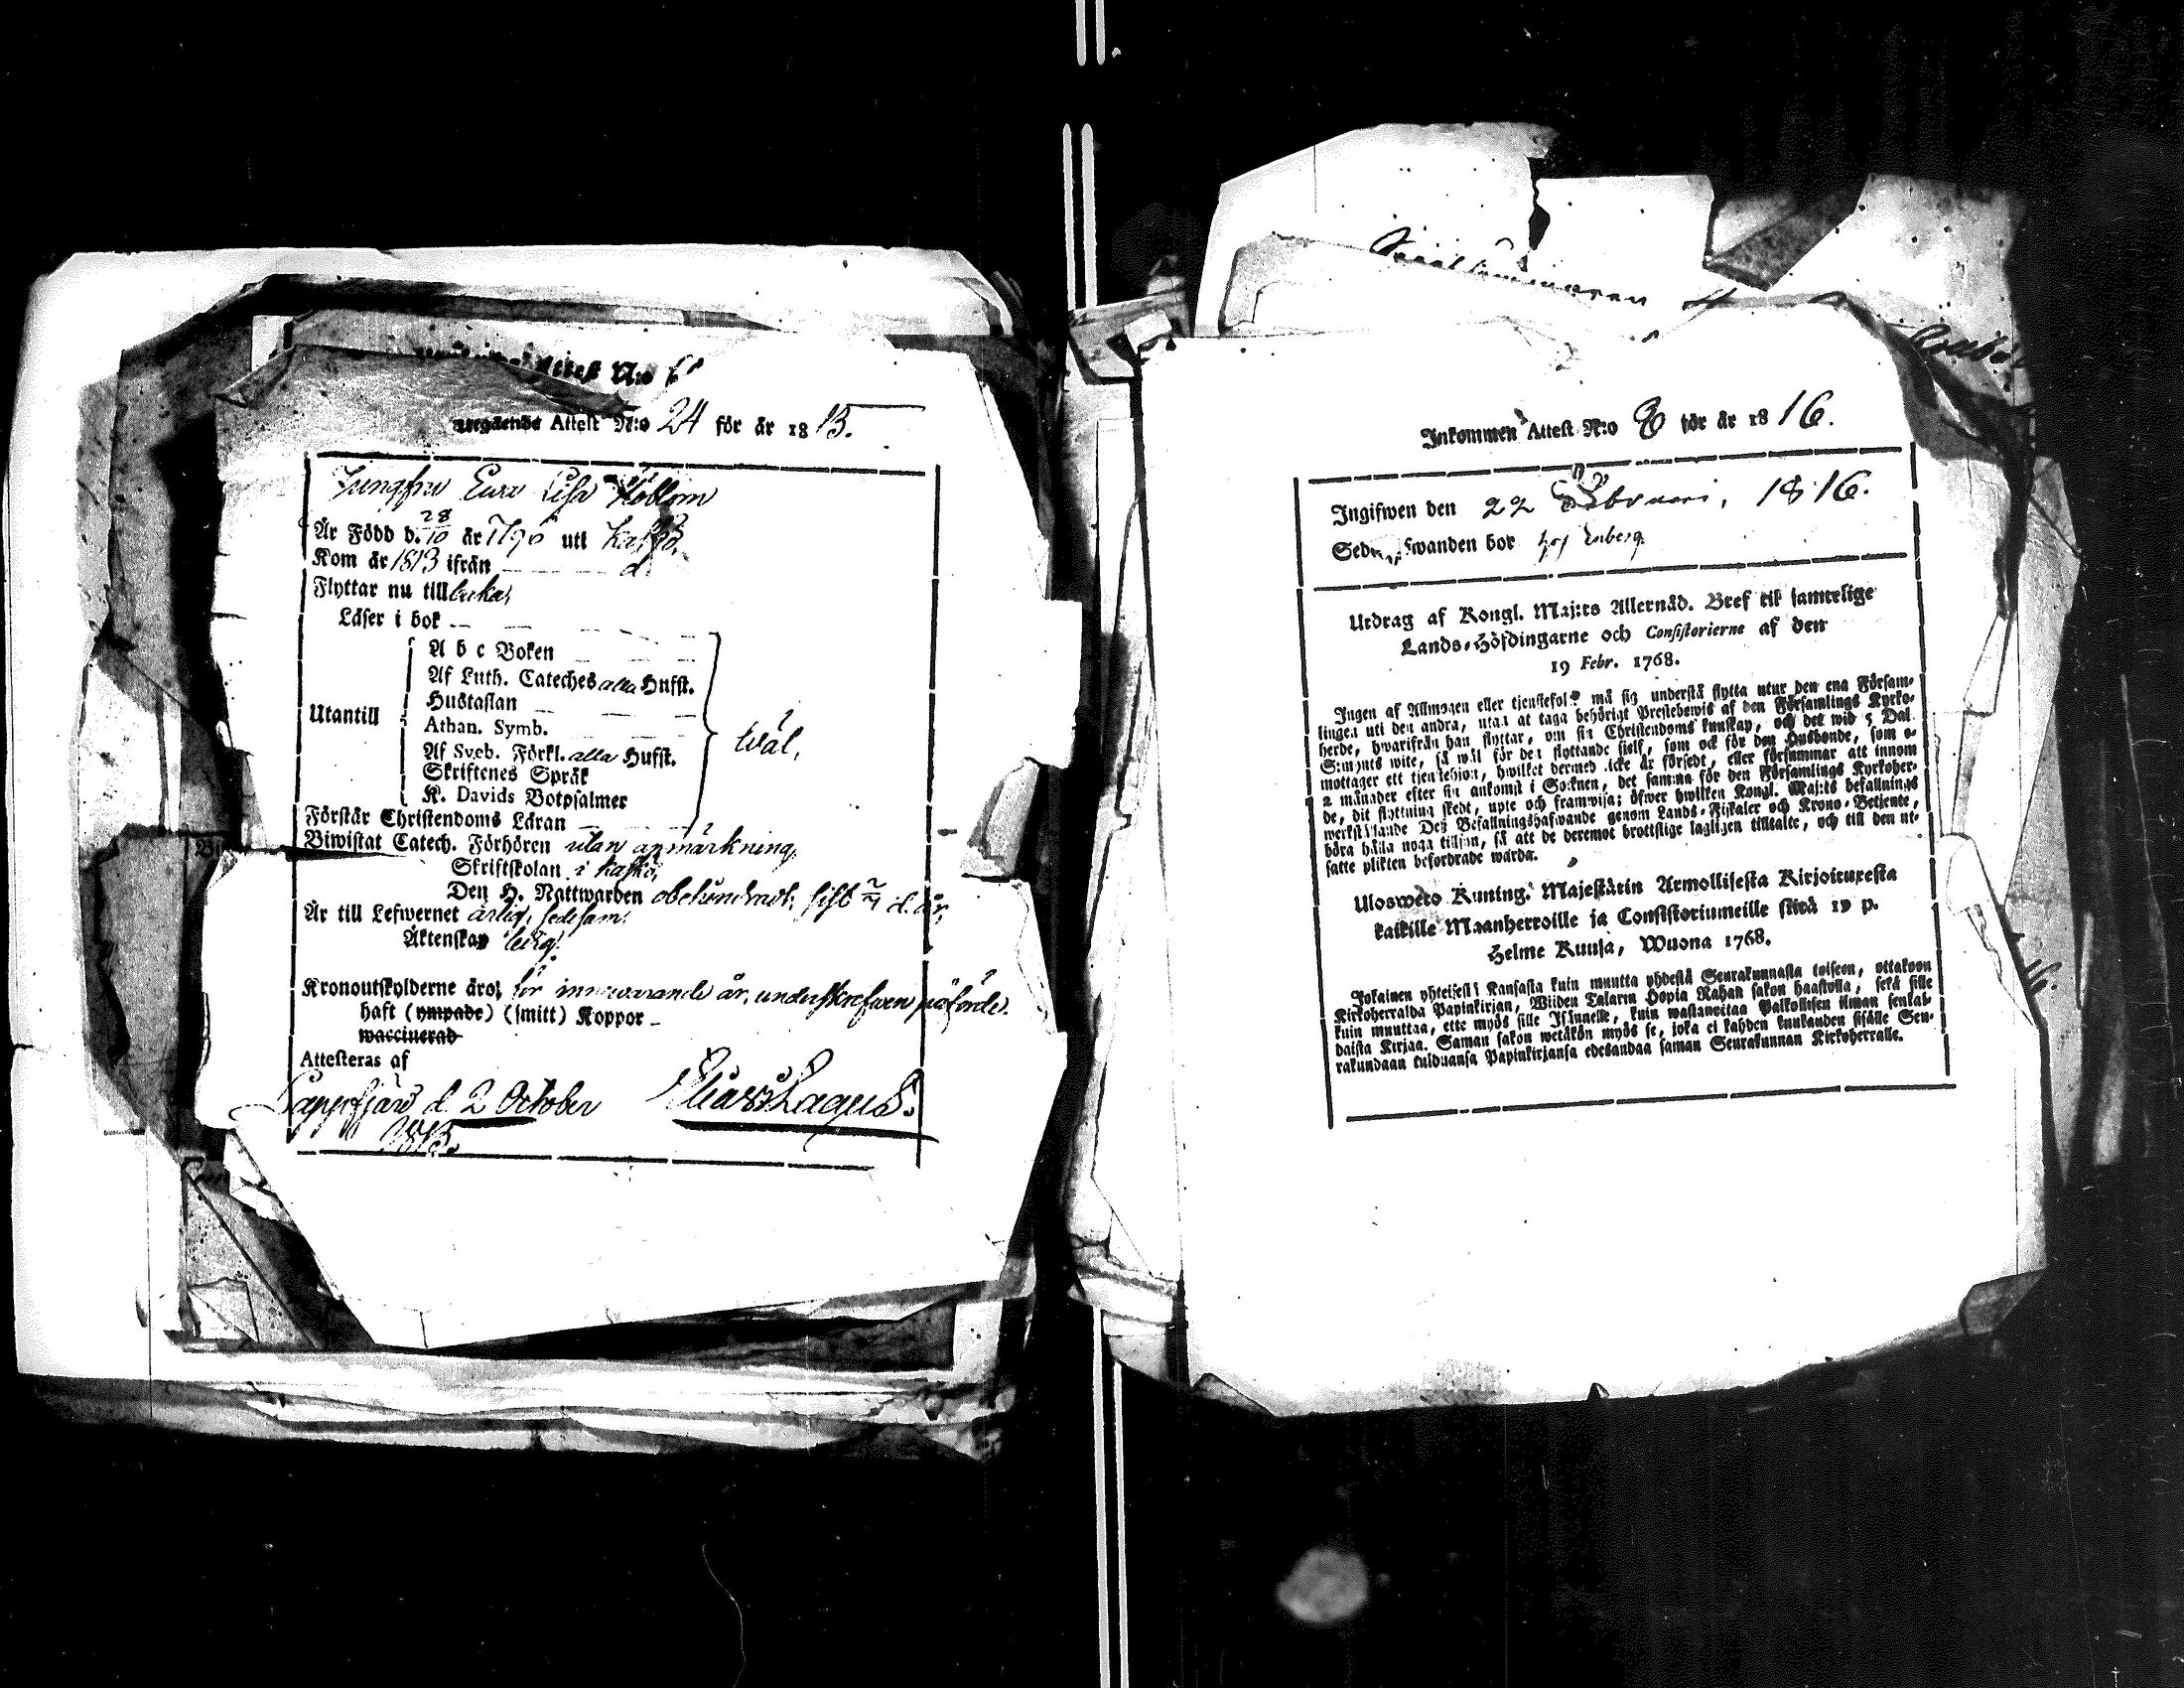 Attest N:o
Utgående Attest N:o 24 för år 1813.
Jungfru Eva Lisa
Är Född d. 28/10 år 1796 uti Kaskö.
Kom år 1813 ifrån d:o
Flyttar nu till
Läser i bok
A b c Boken
Af Luth. Cateches alla Hufst.
Hustaflan
Utantill
Athan. Symb.
Wäl,
Af Sveb. Förkl. alla Hufst.
Skriftenes Språk
K. Davids Botpsalmer
Förstår Christendoms Läran
Biwistat Catech. Förhören utan anmärkning,
Skriftskolan i Kaskö,
Den H. Nattwarden obehindradt, sist d. år,
Är till Lefwernet ärlig, sedesam.
Äktenskap ledig.
Kronoutskylderne äro för innewarande år, underskrefwen påförde.
haft (ympade) (smitt) Koppor
waccinerad
Attesteras af
Lappfjärd d. 2 October Elias Lagus.
1813.
Inkommen Attest N:o 8 för år 1816.
Ingifwen den 22 Februari, 1816.
bor hos Enberg.
Utdrag af Kongl. Maj:ts Allernåd. Bref til samtelige
Lands-Höfdingarne och Consistorierne af den
19 Febr. 1768.
Ingen af Allmogen eller tjenstefolk må sig understå flytta utur den ena Försam-
lingen uti den andra, utan at taga behörigt Prestebewis af den Församlings Kyrko-
herde, hwarifrån han flyttar, om sin Christendoms kunskap, och det wid 5 Dal.
S:mynts wite, så wäl för den flyttande sjelf, som ock för den Husbonde, som e-
mottager ett tjenstehjon, hwilket dermed icke är försedt, eller försummar att innom
2 månader efter sin ankomst i Socknen, det samma för den Församlings Kyrkoher-
de, dit flyttning skedt, upte och framwisa; öfwer hwilken Kongl. Maj:ts befallnings
werkställande Deß Befallningshafwande genom Lands-Fiskaler och Krono-Betjente,
böra hålla noga tillsyn, så att de deremot brottslige lagligen tilltalte, och till den ut-
satte plikten befordrade warda.
Ulosweto Kuning. Majestätin Armollisesta Kirjoituxesta
kaikille Maanherroille ja Consistoriumeille siitä 19 p.
Helme Kuusa, Wuona 1768.
Jokainen yhteisestä Kansasta kuin muutta yhdestä Seurakunnasta toiseen, ottakoon
Kirkoherralda Papinkirjan, Wiiden Talarin Hopia Rahan sakon haastolla, sekä sille
kuin muuttaa, ette myös sille Isännelle, kuin wastanottaa Palkollisen ilman senkal-
daista Kirjaa. Saman sakon wetäkön myös se, joka ei kahden kuukauden sisälle Seu-
rakundaan tulduansa Papinkirjansa edesandaa saman Seurakunnan Kirkoherralle.